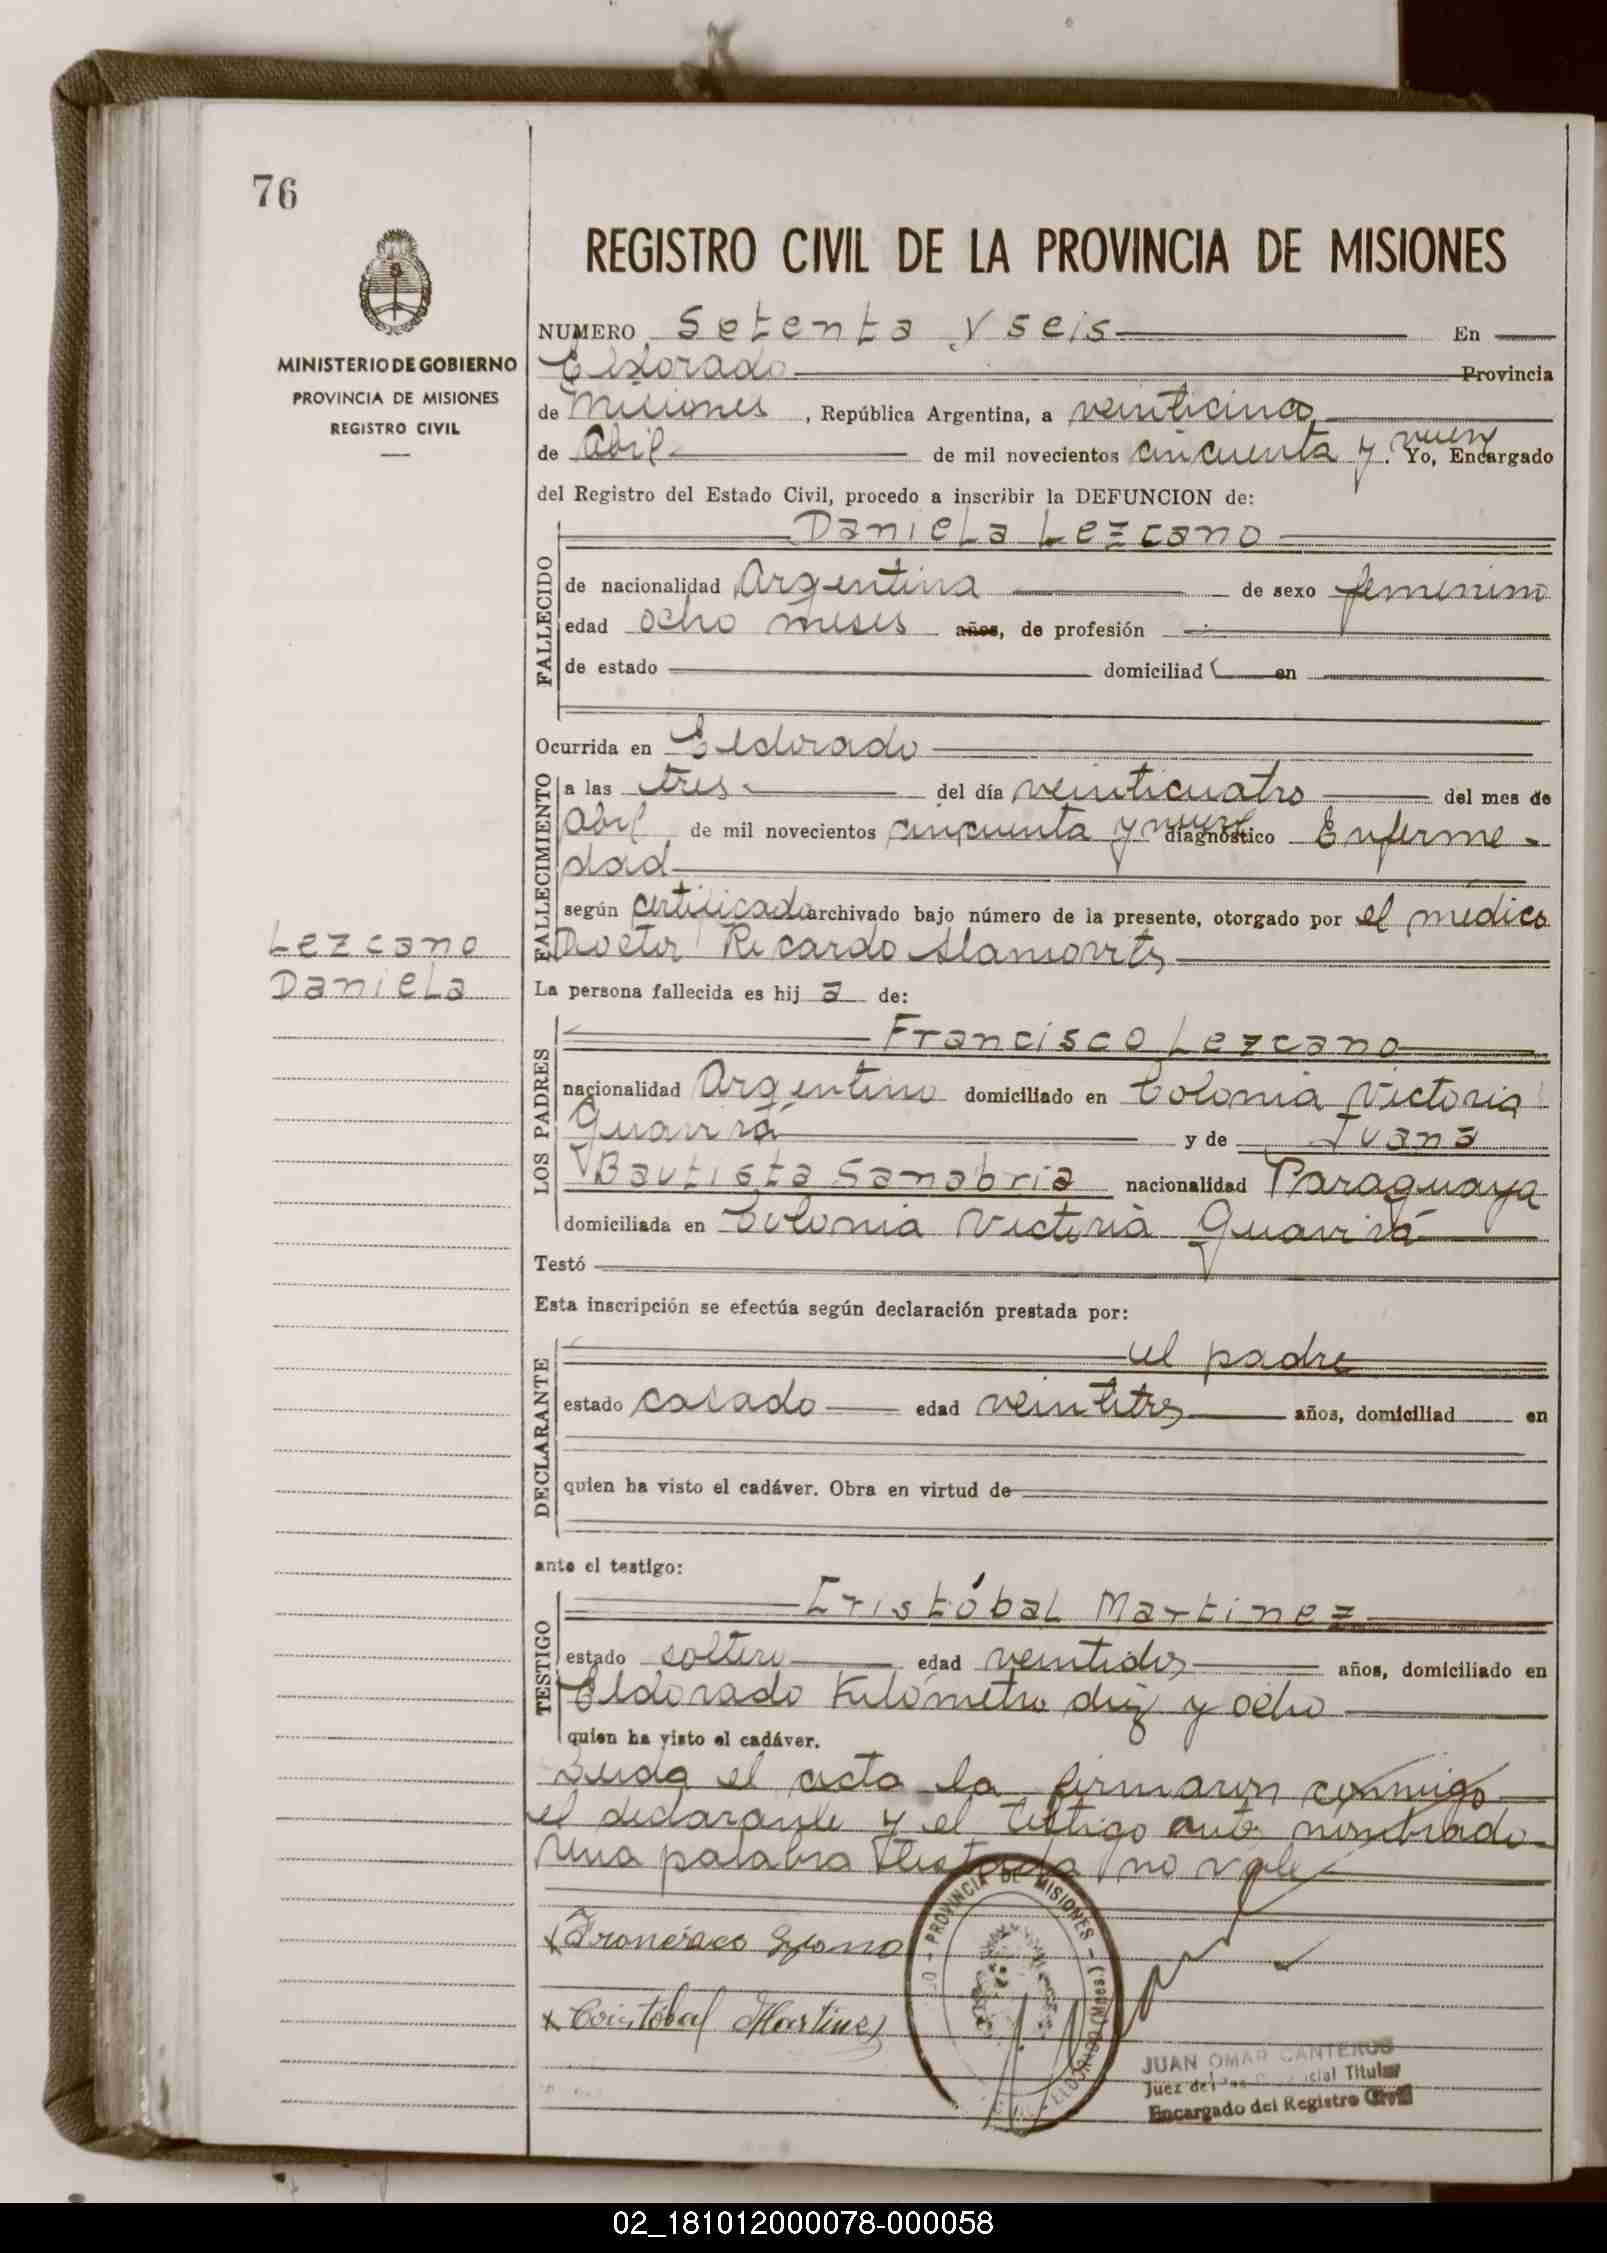 76
REGISTRO CIVIL DE LA PROVINCIA DE MISIONES
MINISTERIO DE GOBIERNO
PROVINCIA DE MISIONES
REGISTRO CIVIL
NUMERO Setenta y seis En
Eldorado Provincia
de Misiones, República Argentina, a veinticinco
de Abril de mil novecientos cincuenta y nueve. Yo, Encargado
del Registro del Estado Civil, procedo a inscribir la DEFUNCION de:
FALLECIDO
Daniela Lezcano
de nacionalidad Argentina de sexo femenino
edad ocho meses años, de profesión
de estado domiciliad en
Ocurrida en Eldorado
FALLECIMIENTO
a las tres del día veinticuatro del mes de
Abril de mil novecientos cincuenta y nueve diagnóstico Enferme-
dad
según certificado archivado bajo número de la presente, otorgado por el médico
Doctor Ricardo
Lezcano
Daniela
La persona fallecida es hij a de:
LOS PADRES
Francisco Lezcano
nacionalidad Argentino domiciliado en Colonia Victoria
Guavirá y de Juana
Bautista Sanabria nacionalidad Paraguaya
domiciliada en Colonia Victoria Guavirá
Testó
Esta inscripción se efectúa según declaración prestada por:
DECLARANTE
el padre
estado casado edad veintitres años, domiciliad en
quien ha visto el cadáver. Obra en virtud de
ante el testigo:
TESTIGO
Cristóbal Martinez
estado soltero edad veintidos años, domiciliado en
Eldorado Kilómetro diez y ocho
quien ha visto el cadáver.
Leída el acta la firmaron conmigo
el declarante y el testigo ante nombrado
Una palabra testada no vale
x Francisco Lezcano
x Cristóbal Martinez
PROVINCIA DE MISIONES
JUAN OMAR CANTEROS
Juez de Titular
Encargado del Registro Civil
02_181012000078-000058